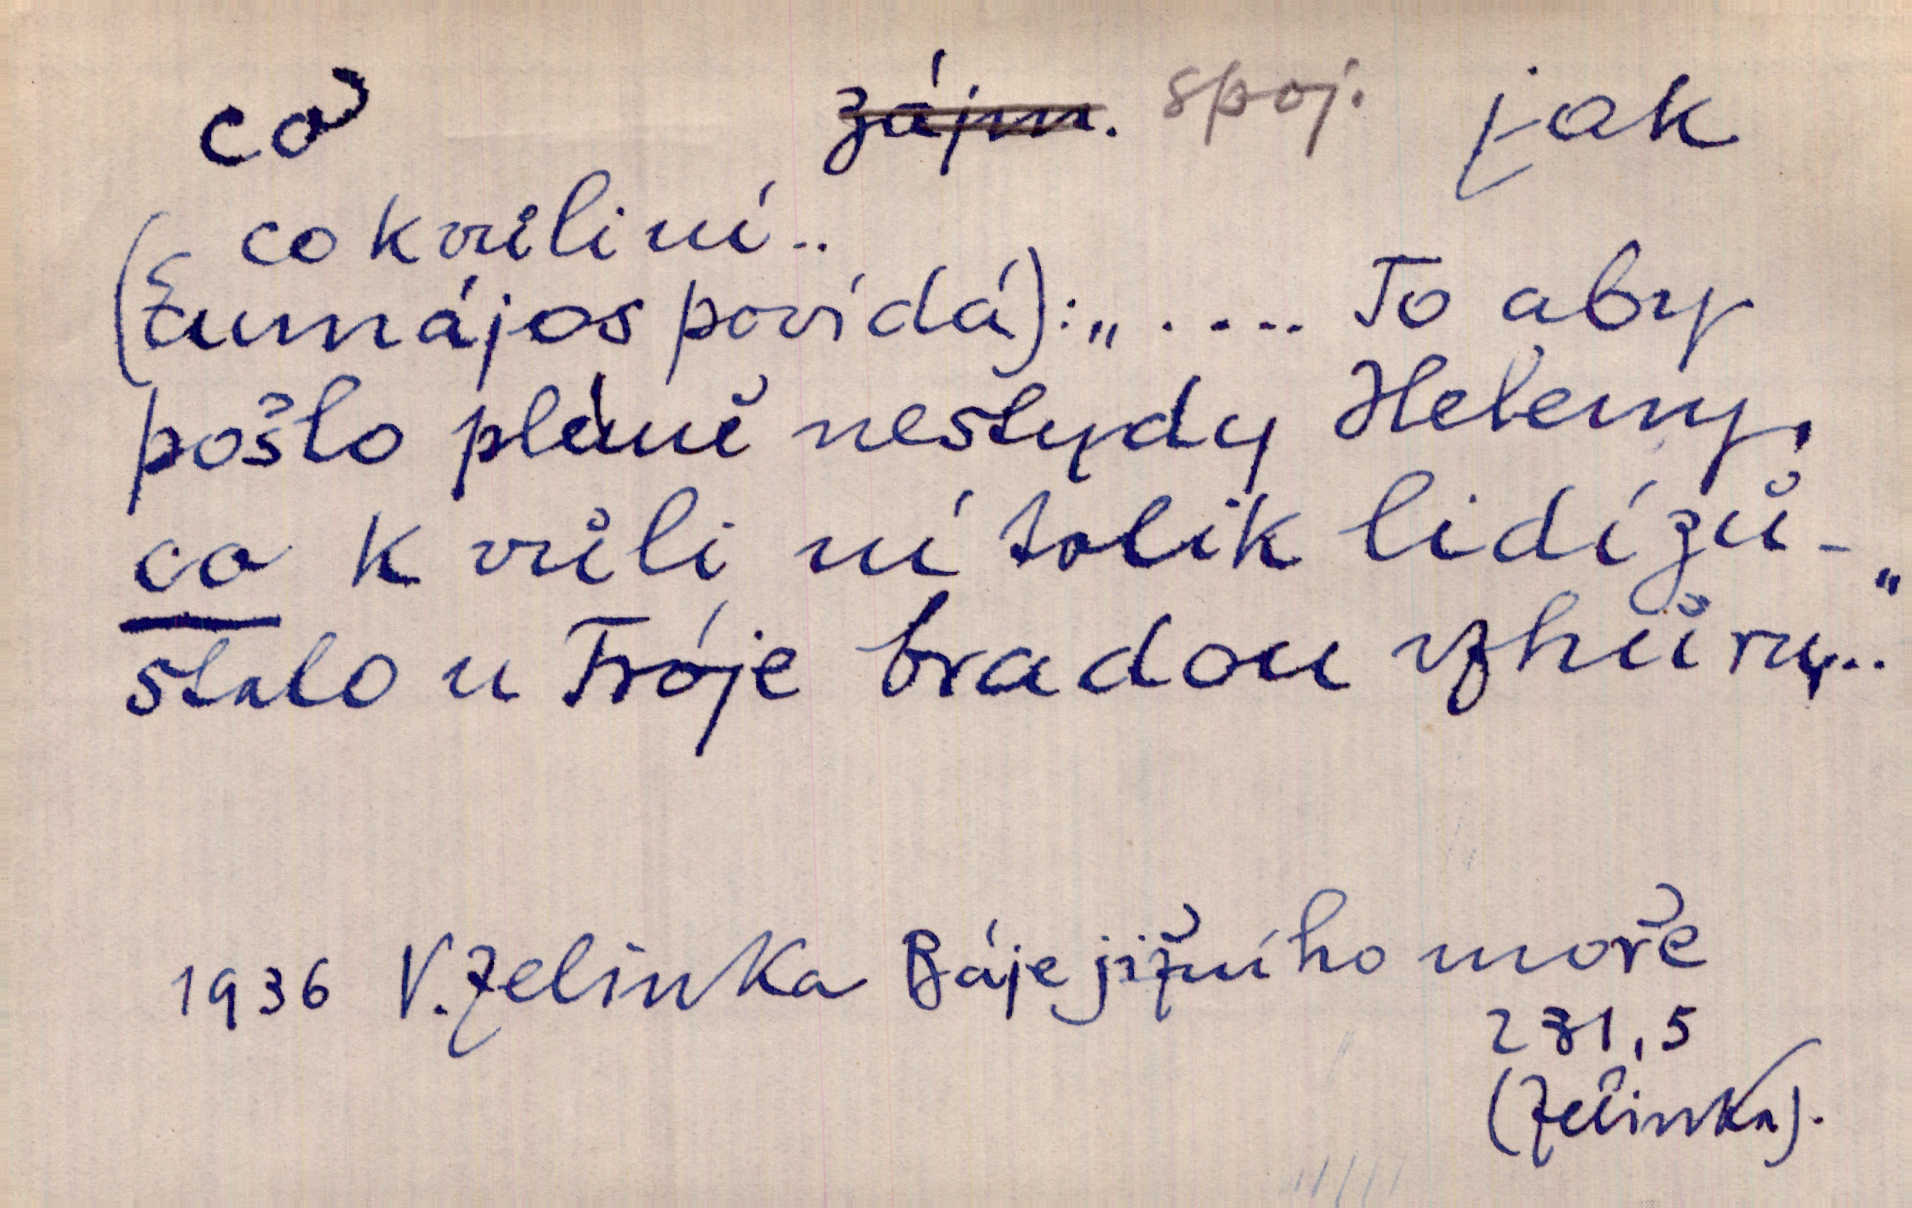 co zájm. spoj. jak
co kvůli ní..
(Eumájos povídá): „ ..... To aby
pošlo plémě nestydy Heleny,
co k vůli ní tolik lidí zů-
stalo u Tróje bradou vzhůru..."
1936 V. Zelinka Báje jižního moře
231,5
(Zelinka).